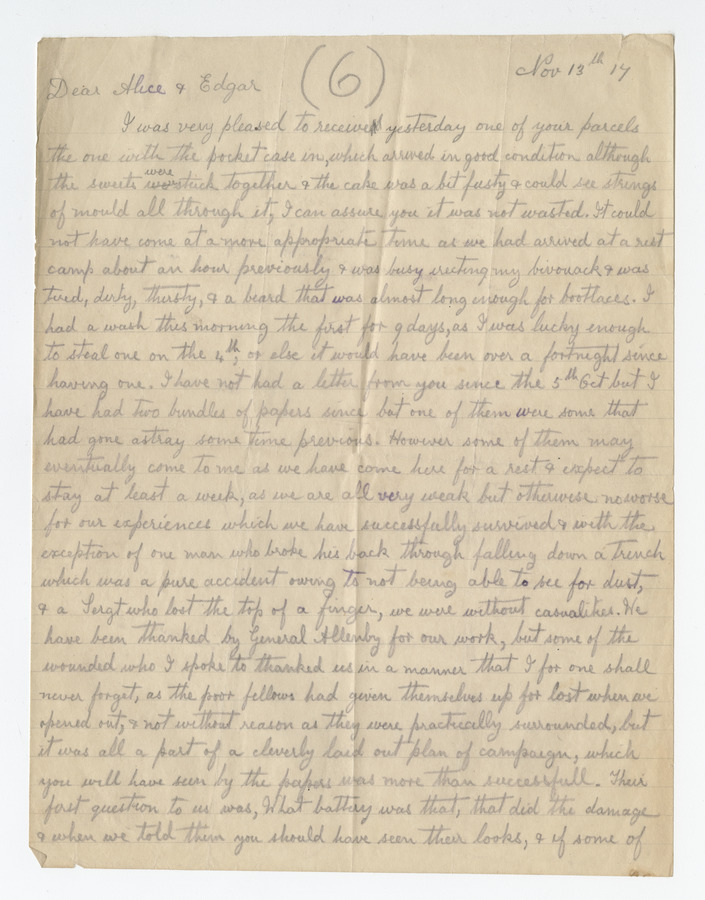 (6)
Nov 13th 17
Dear Alice & Edgar
I was very pleased to receive yesterday one of your parcels
the one with the pocket case in, which arrived in good condition although
the sweets were stuck together & the cake was a bit fusty & could see strings
of mould all through it, I can assure you it was not wasted. It could
not have come at a more appropriate time as we had arrived at a rest
camp about an hour previously & was busy erecting my bivouack & was
tired, dirty, thirsty, & a beard that was almost long enough for bootlaces. I
had a wash this morning the first for 9 days, as I was lucky enough
to steal one on the 4th, or else it would have been over a fortnight since
having one. I have not had a letter from you since the 5th Oct but I
have had two bundles of papers since but one of them were some that
had gone astray some time previous. However some of them may
eventually come to me as we have come here for a rest & expect to
stay at least a week, as we are all very weak but otherwise no worse
for our experiences which we have successfully survived & with the
exception of one man who broke his back through falling down a trench
which was a pure accident owing to not being able to see for dust,
& a Sergt who lost the top of a finger, we were without casualities. We
have been thanked by General Allenby for our work, but some of the
wounded who I spoke to thanked us in a manner that I for one shall
never forget, as the poor fellows had given themselves up for lost when we
opened out, & not without reason as they were practically surrounded, but
it was all a part of a cleverly laid out plan of campaign, which
you will have seen by the papers was more than successfull. Their
first question to us was, What battery was that, that did the damage
& when we told them you should have seen their looks, & if some of